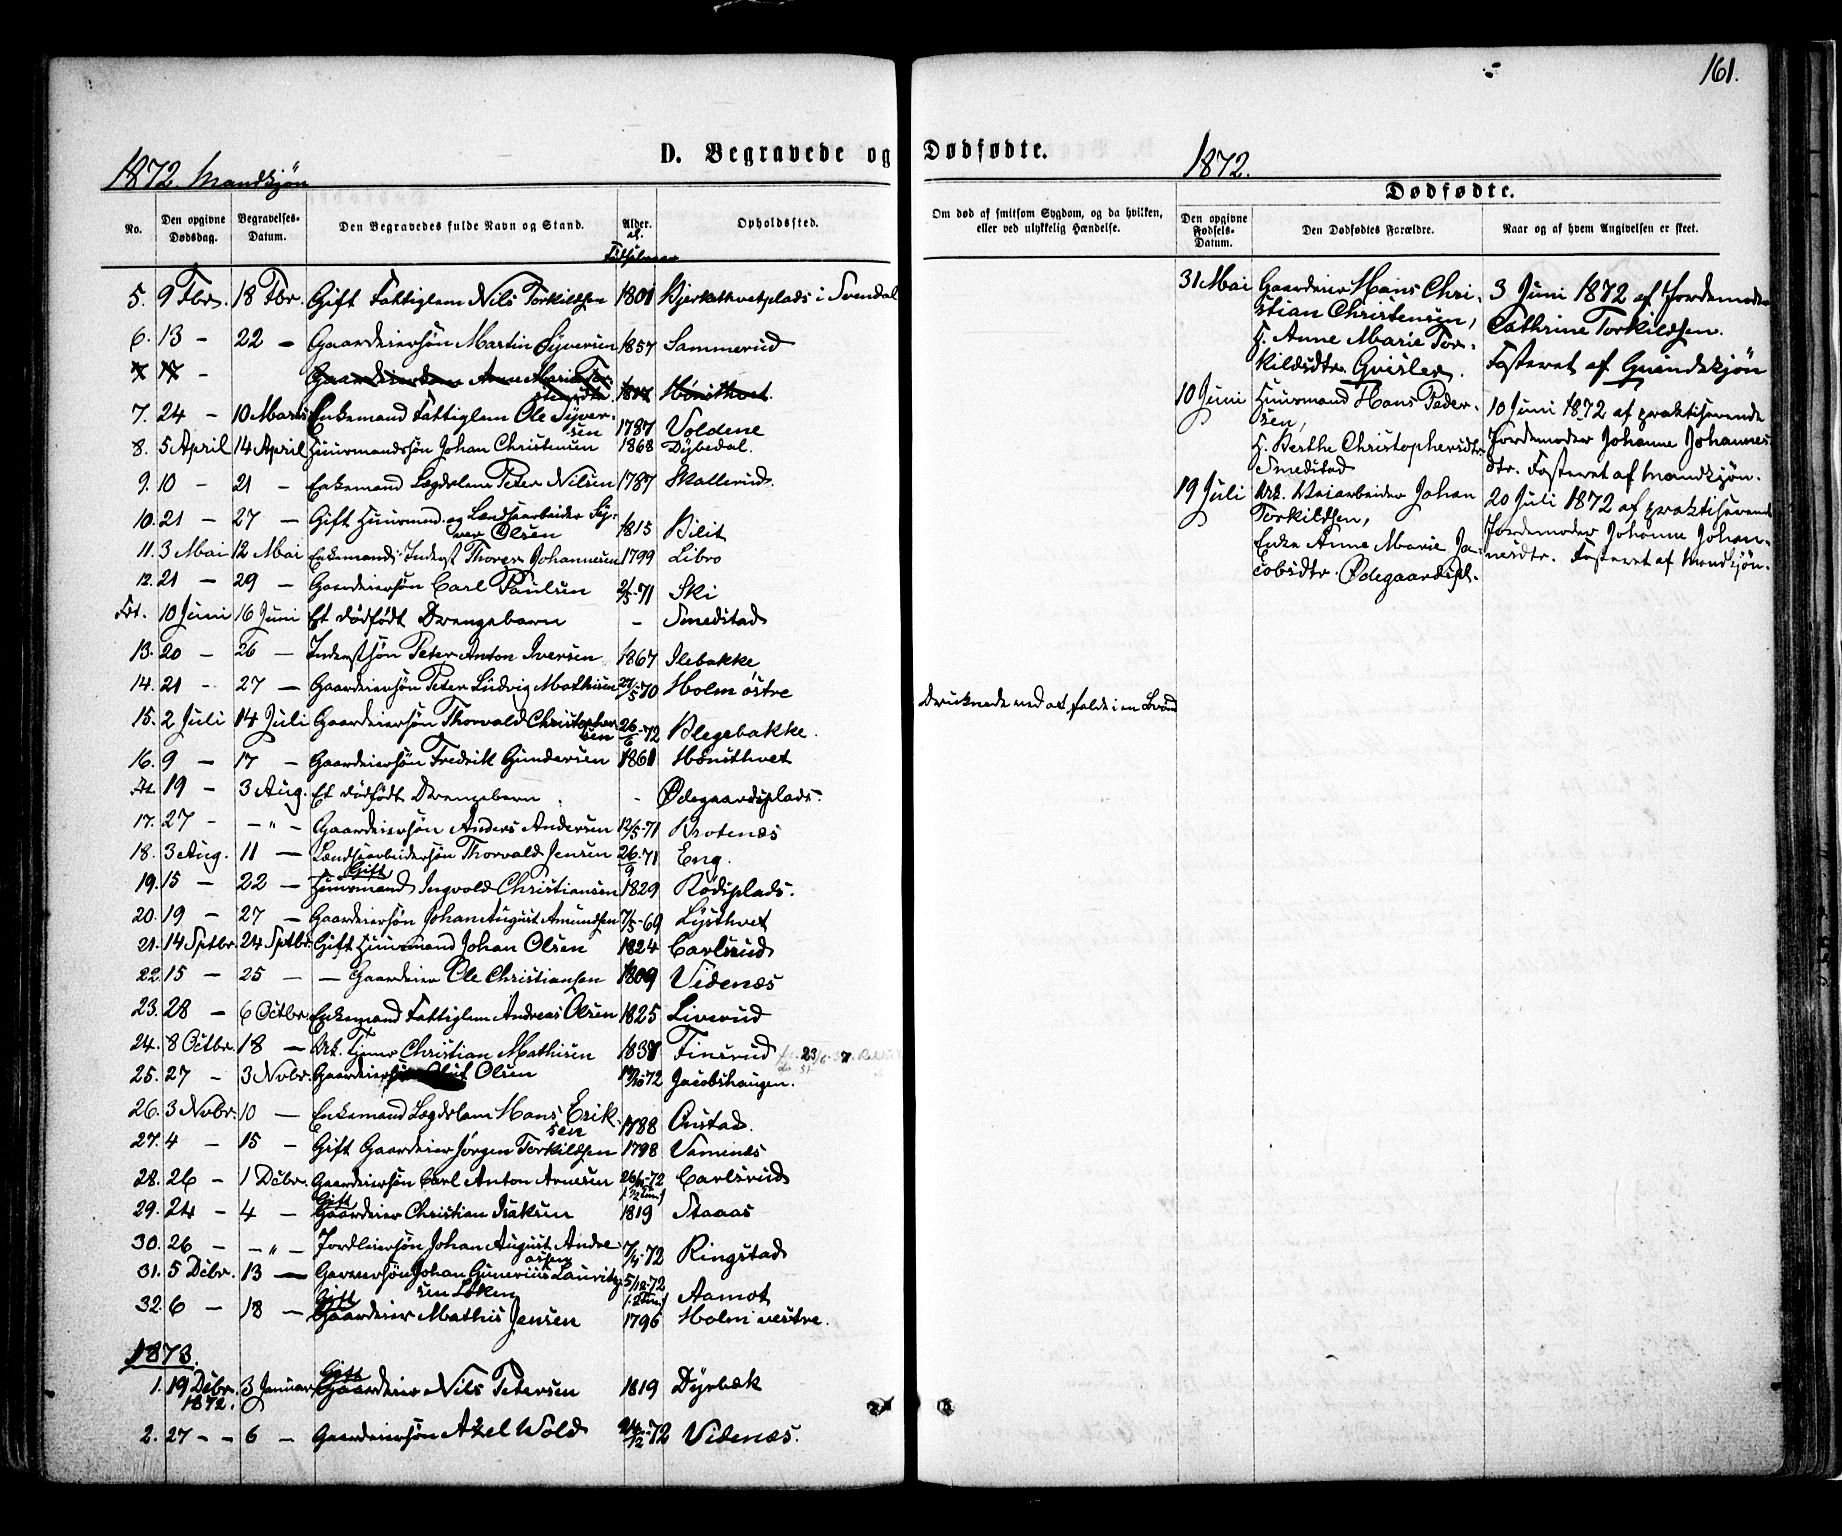 161.
D. Begravede og Dødfødte.
1872. Mandkjøn
1872.
Dødfødte.
No.
Den opgivne Dødsdag.
Begravelses-Datum.
Den Begravedes fulde Navn og Stand.
Alder.
Opholdssted.
Om død af smitsom Sygdom, og da hvilken,
eller ved ulykkelig Hændelse.
Den opgivne Fødsels-Datum.
Den Dødfødtes Forældre.
Naar og af hvem Angivelsen er skeet.
5. 9 Fbr. 18 Fbr. Gift Fattiglem Nils Torkildsen 1801 Bjerkethvetplads i Svendal
6. 13 – 22 – Gaardeiersøn Martin Syversen 1857 Sammerud
7. 24 – 10 Marts Enkemand Fattiglem Ole Syver-
sen 1787 Voldene
8. 5 April 14 April Huusmandssøn Johan Christensen 1868 Dybedal.
9. 10 – 21 – Enkemand Lægdslem Peter Nilsen 1787 Skollerud.
10. 21 – 27 – Gift Huusmand og Landsarbeider Sy-
ver Olsen 1815 Bilit
11. 3 Mai 12 Mai Enkemand Inderst Thorer Johannesen 1799 Libro
12. 21 – 29 – Gaardeiersøn Carl Paulsen 2/5-71 Ski
10 Juni 16 Juni Et dødfødt Drengebarn – Smedstad
13. 20 – 26 – Inderstsøn Peter Anton Iversen 1867 Ilebakke
14. 21 – 27 – Gaardeiersøn Peter Ludvig Mathisen 27/5-70 Holm østre
Druknede ved at falde i en Brønd
15. 2 Juli 14 Juli Gaardeiersøn Thorvald Christopher-
sen 26/6-72 Blegebakke.
16. 9 – 17 – Gaardeiersøn Fredrik Gundersen 1861 Hønsthvet
19 – 3 Aug. Et dødfødt Drengebarn – Ødegaardsplads.
17. 27 – – " – Gaardeiersøn Anders Andersen 12/5-71 Krotenæs
18. 3 Aug. 11 – Landsarbeidersøn Thorvald Jensen 26/9-71 Eng.
19. 15 – 22 – Gift Huusmand Ingvold Christiansen 1829 Rødsplads.
20. 19 – 27 – Gaardeiersøn Johan August Amundsen 7/5-69 Lysthvet
21. 14 Sptbr. 24 Sptbr. Gift Huusmand Johan Olsen 1824 Carlsrud
22. 15 – 25 – – Gaardeier Ole Christiansen 1809 Videnæs
23. 28 – 6 Octbr. Enkemand Fattiglem Andreas Olsen 1825 Liverud
24. 8 Octbr. 18 – Urk. Tjener Christian Mathisen Finsrud
25. 27 – 3 Novbr. Gaardeiersøn Oluf Olsen Jacobshaugen.
26. 3 Novbr. 10 – Enkemand Lægdslem Hans Erik-
sen 1788 Onstad.
27. 4 – 15 – Gift Gaardeier Jørgen Torkildsen 1798 Vamnæs
28. 26 – 1 Dcbr. Gaardeiersøn Carl Anton Arnesen 26/11-72 Carlsrud
29. 24 – 4 – Gift Gaardeier Christian Isaksen 1819 Staaas
30. 26 – – " – Jordleiersøn Johan August Andre-
asen 7/4-72 Ringstad
31. 5 Dcbr. 13 – Johan Gunerius Lauritz-
sen Løken 5/12-72 Aamot
32. 6 – 18 – Gift Gaardeier Mathis Jensen 1796 Holm vestre.
1873.
1. 19 Dcbr. 1872. 3 Januar Gift Gaardeier Nils Petersen 1819 Dyrbæk
2. 27 – – 6 – Gaardeiersøn Axel Wold 24/12-72 Videnæs.
31 Mai Gaardeier Hans Chri-
stian Christensen,
H. Anne Marie Tor-
kildsdtr. Qvisler.
3 Juni 1872 af Jordemoder
Cathrine Torkildsen.
Fosteret af Qvindekjøn
10 Juni Huusmand Hans Peder-
sen,
H. Berthe Christophersdtr.
Smedstad
10 Juni 1872 af praktiserende
Jordemoder Johanne Johannes-
dtr. Fosteret af Mandkjøn.
19 Juli Urk. Veiarbeider Johan
Torkildsen,
Enke Anne Marie Ja-
cobsdtr. Ødegaardspl.
20 Juli 1872 af praktiserende
Jordemoder Johanne Johan-
nesdtr. Fosteret af Mandkjøn.